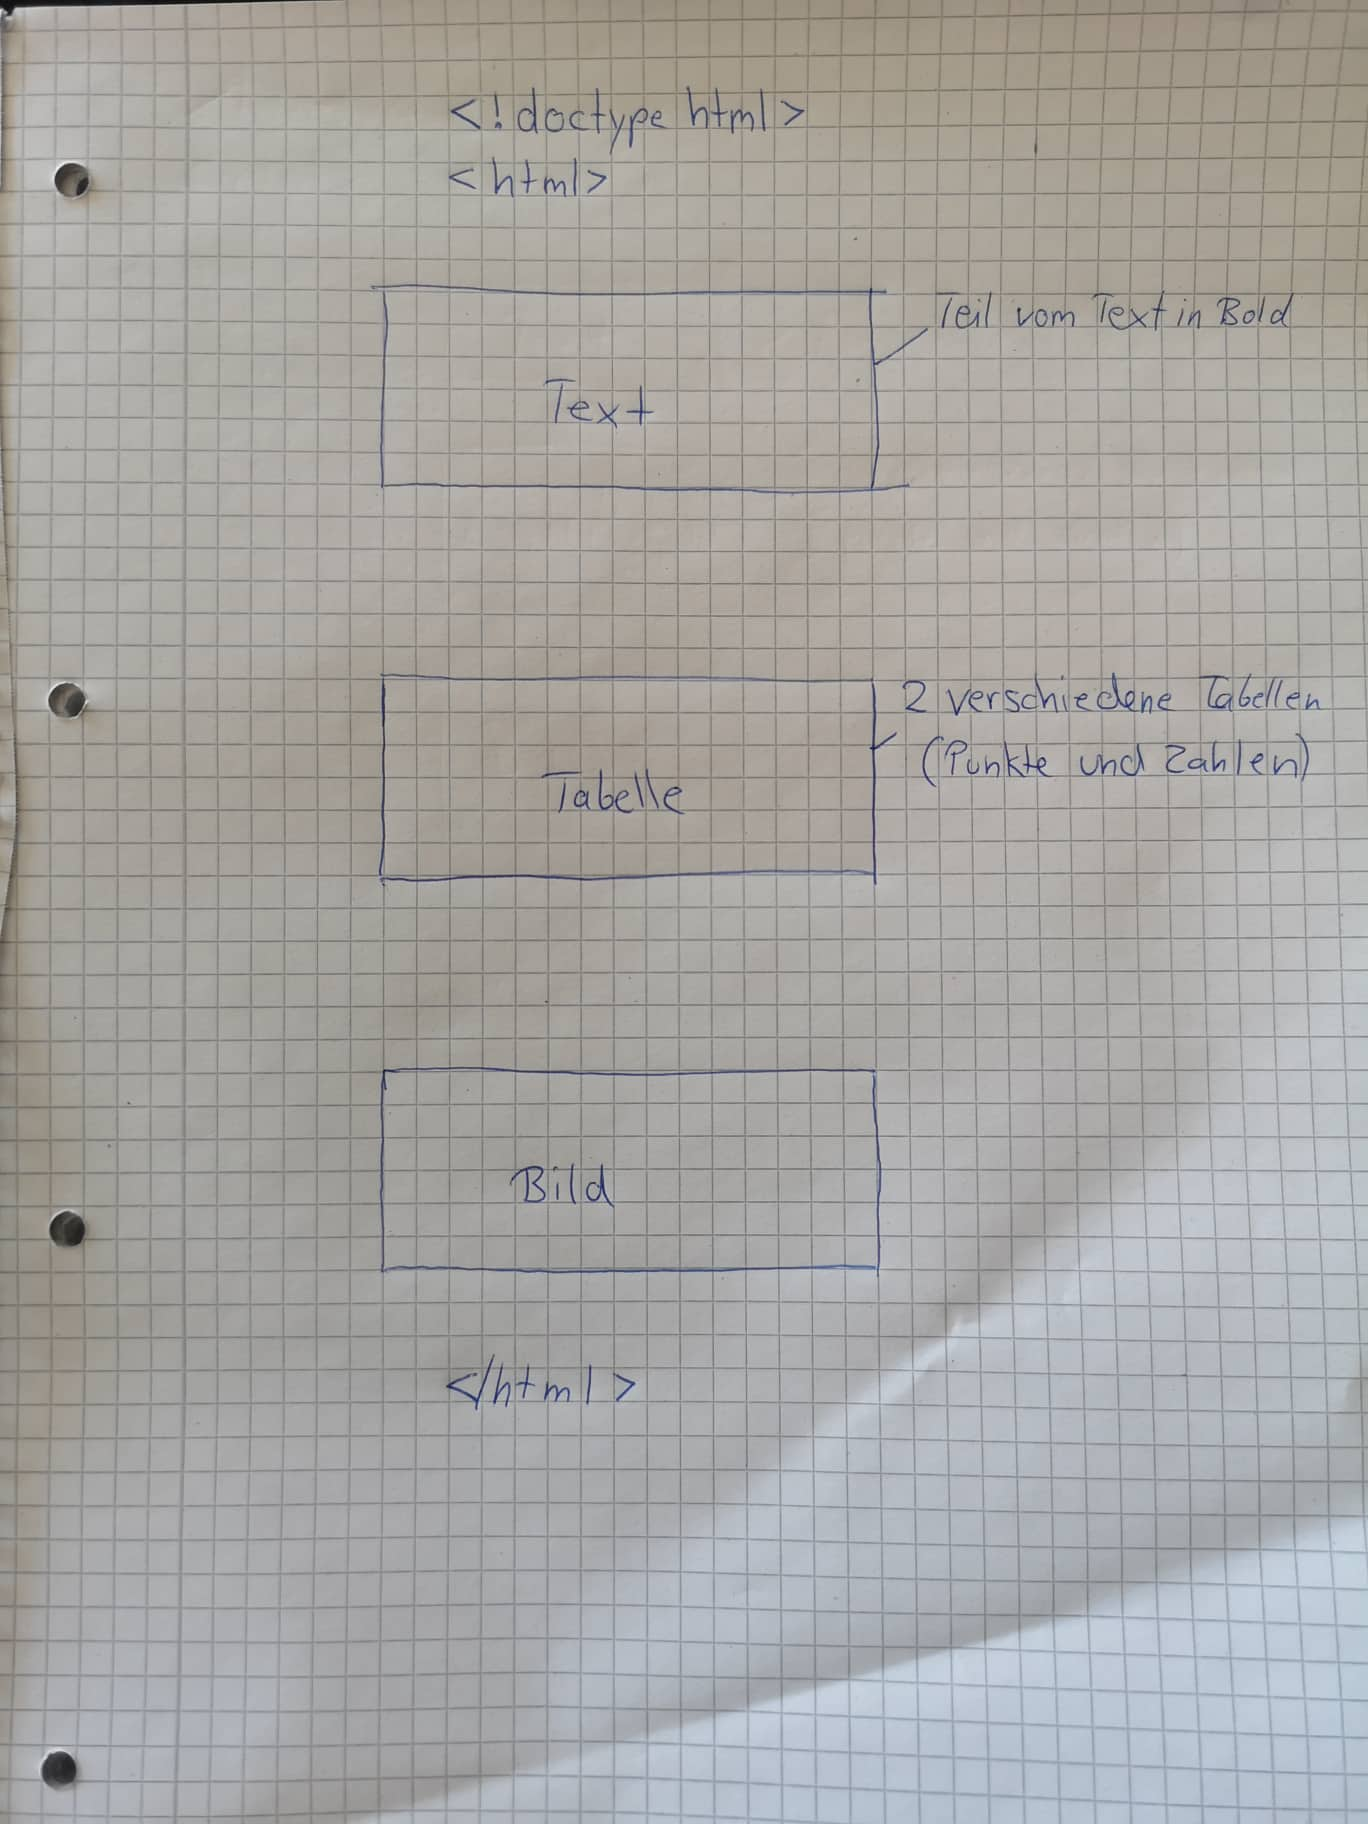 <!doctype html>
<html>
Teil vom Text in Bold
Text
2 verschiedene Tabellen
(Punkte und Zahlen)
Tabelle
Bild
</html>